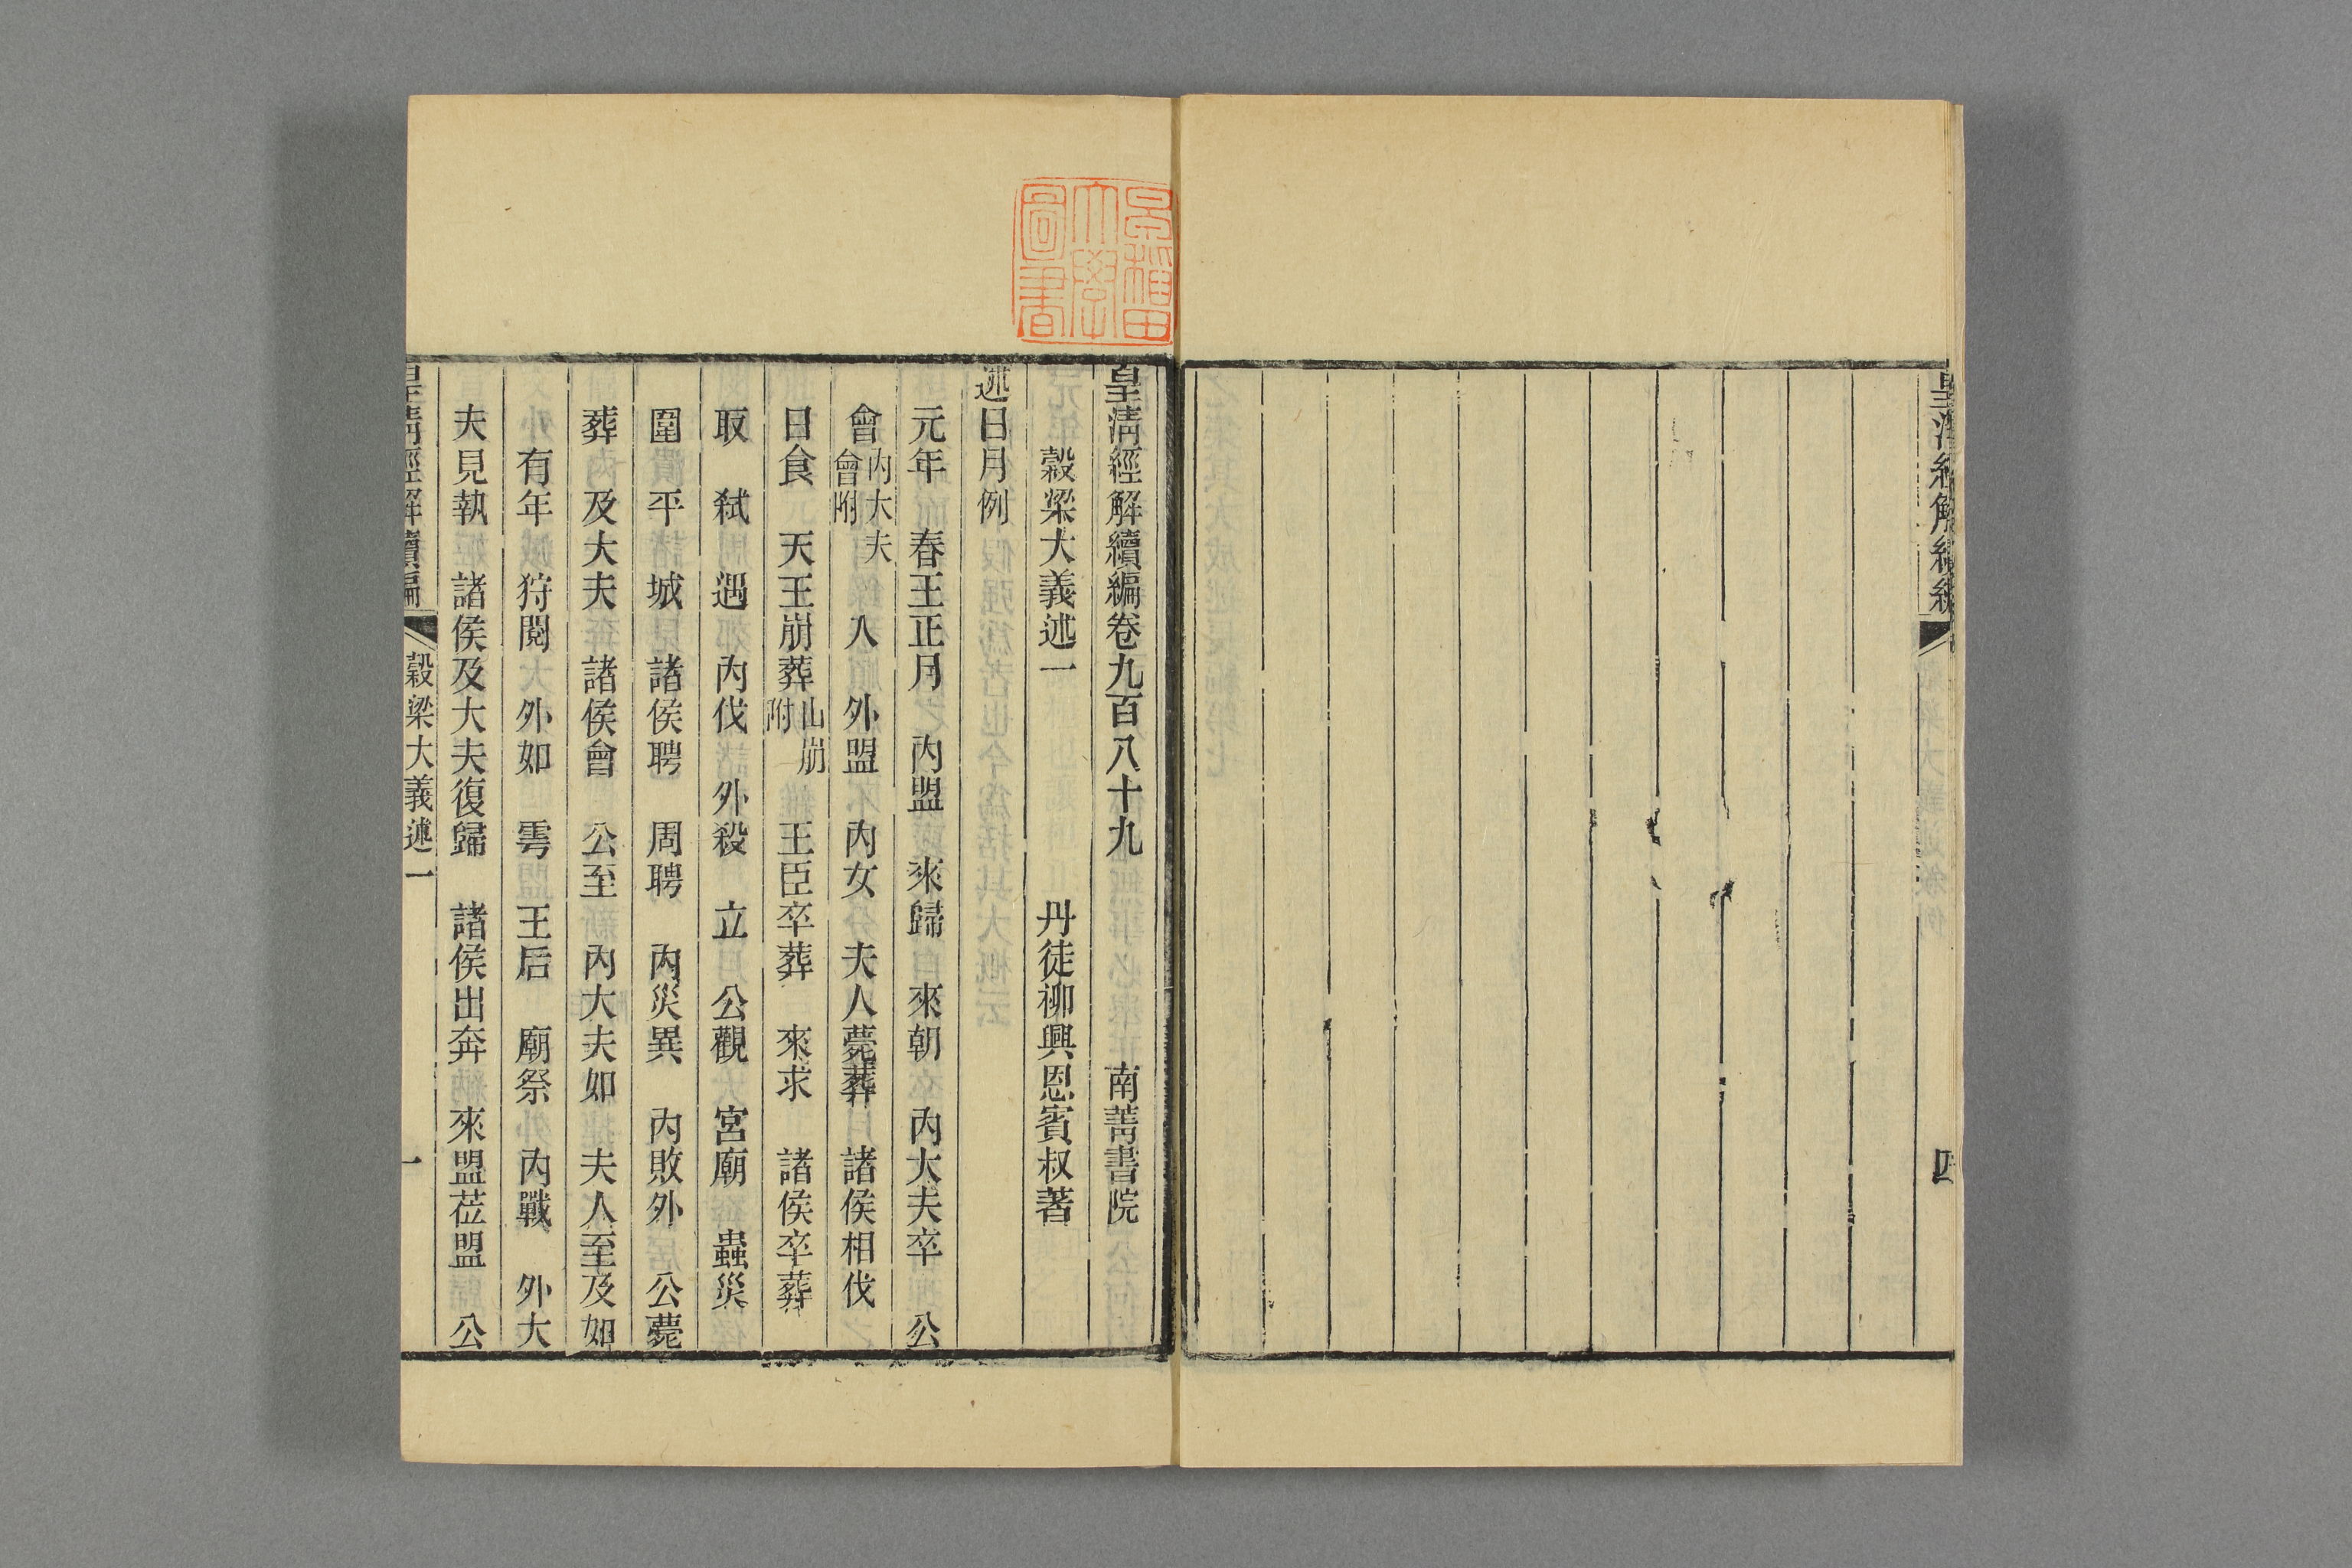 皇清經解續編
四
早稻田
大學
圖書
皇清經解續編卷九百八十九　南菁書院
穀梁大義述一　丹徒柳興恩賓叔著
述日月例
元年　春王正月　內盟　來歸　來朝　內大夫卒　公
會內大夫會附　入　外盟　內女　夫人薨葬　諸侯相伐
日食　天王崩葬山崩附　王臣卒葬　來求　諸侯卒葬
取　弑　遇　內伐　外殺　立　公觀　宮廟　蟲災
圍　平　城　諸侯聘　周聘　內災異　內敗外　公薨
葬　及大夫　諸侯會　公至　內大夫如　夫人至及如
有年　狩閱　外如　雩　王后　廟祭　內戰　外大
夫見執　諸侯及大夫復歸　諸侯出奔　來盟莅盟　公
皇清經解續編　穀梁大義述一　一